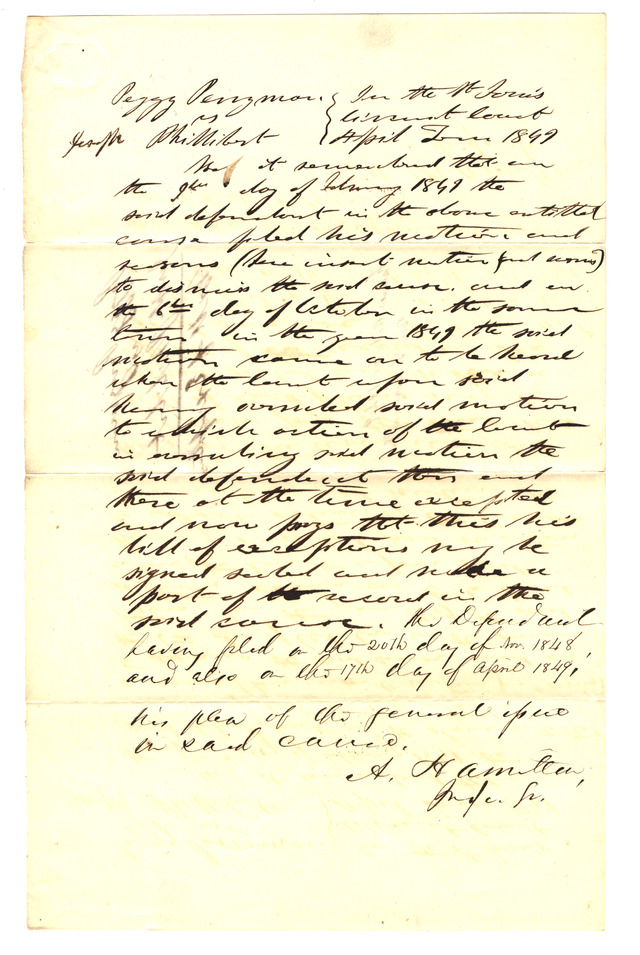 Peggy Perryman } In the St Louis
vs } Circuit Court
Joseph Phillibert } April Term 1849
Be it remembered that on
the 9th day of February 1849 the
said defendant in the above entitled
cause filed his motion and
reasons (here insert motion and reasons)
to dismiss the said cause. and on
the 6th day of October in the same
term in the year 1849 the said
motion came on to be heard
when the Court upon said
hearing overruled said motion
to which action of the Court
in overruling said motion the
said defendant then and
there at the time excepted
and now prays that this his
bill of exceptions may be
signed sealed and made a
part of the record in the
said cause. the Defendant
having filed on the 20th day of Nov. 1848,
and also on the 17th day of April 1849,
his plea of the general issue
in said cause.
A. Hamilton,